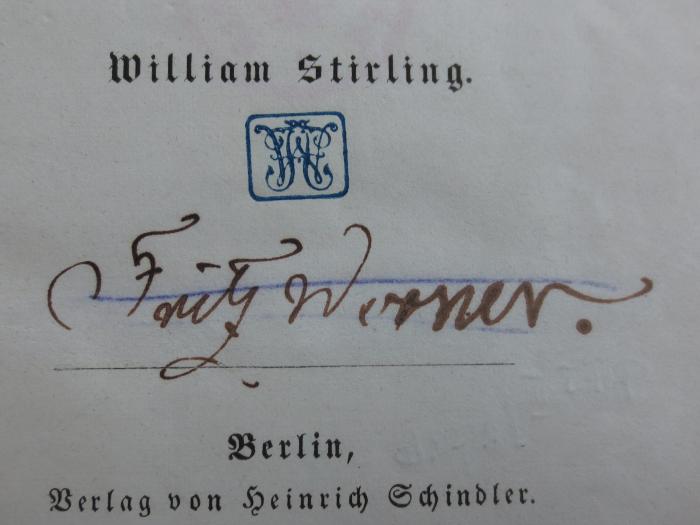 William Stirling.
Fritz Werner.
Berlin,
Verlag von Heinrich Schindler.